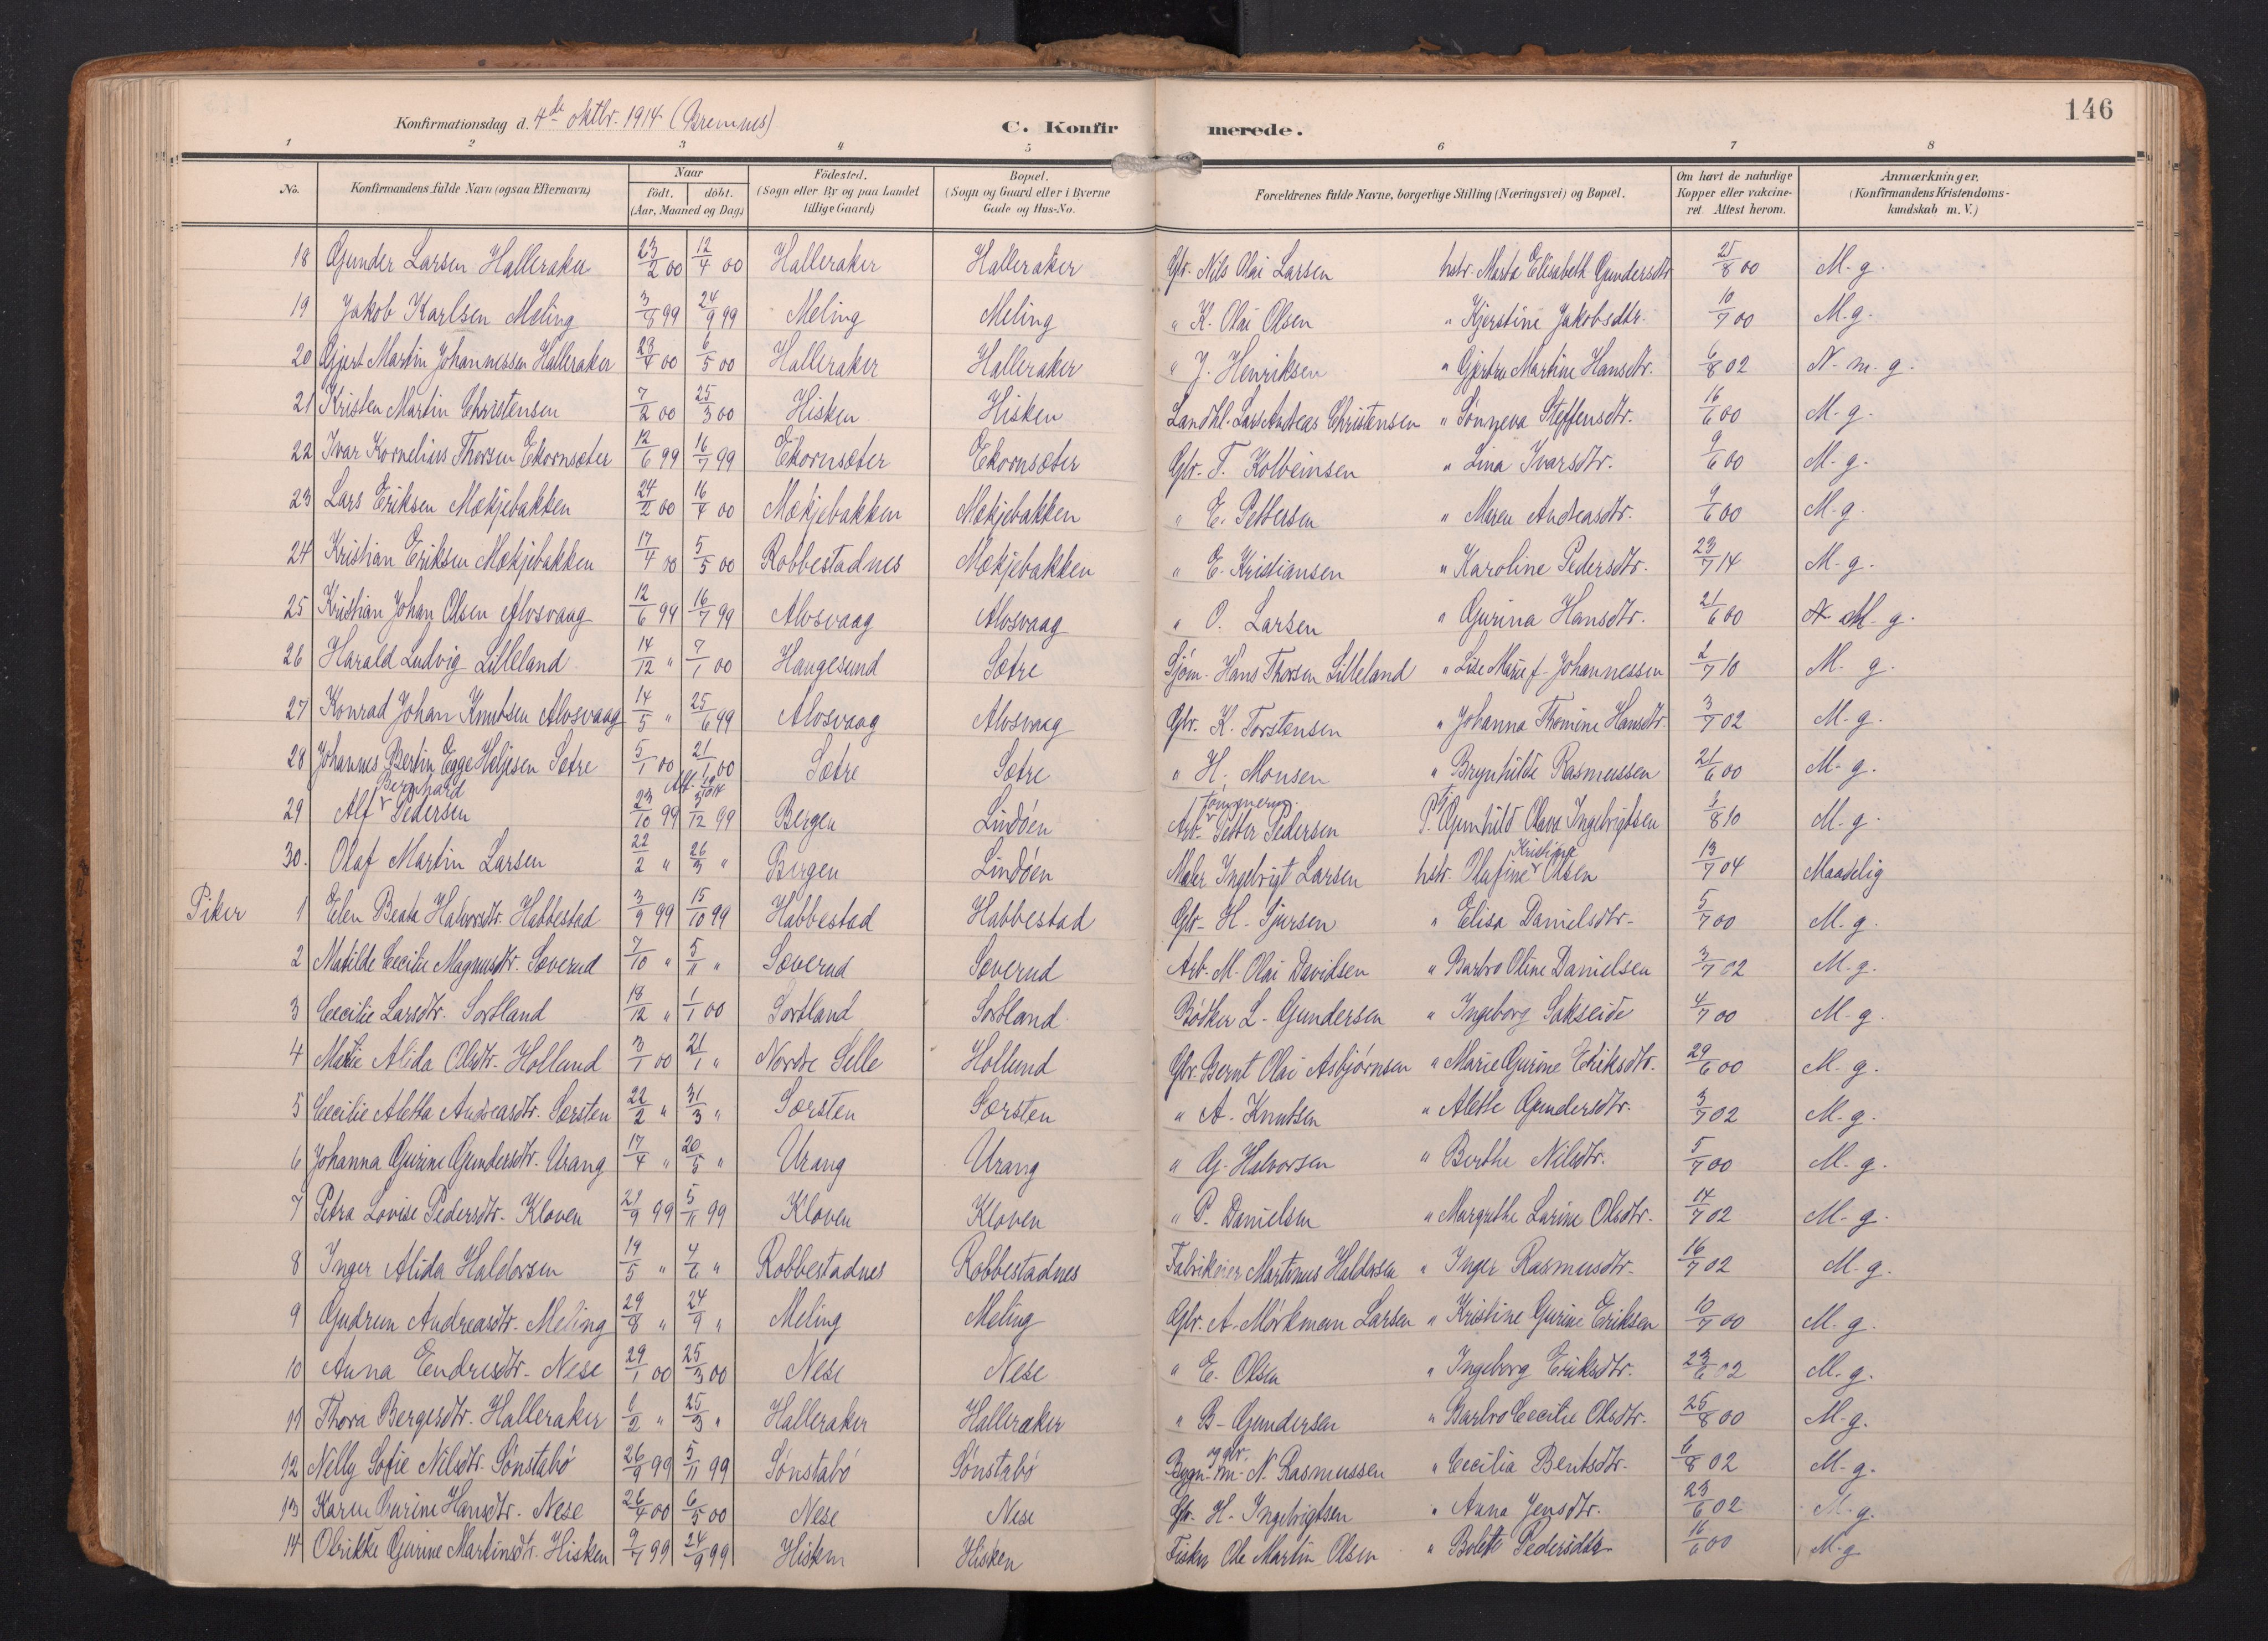 146
Konfirmationsdag d. 4de oktbr. 1914 (Bremnes) C. Konfirmerede.
1 2 3 4 5 6 7 8
No. Konfirmandens fulde Navn (ogsaa Efternavn) Naar født. døbt. (Aar, Maaned og Dag) Fødested. (Sogn eller By og paa Landet tillige Gaard) Bopæl. (Sogn og Gaard eller i Byerne Gade og Hus-No. Forældrenes fulde Navne, borgerlige Stilling (Næringsvei) og Bopæl. Om havt de naturlige Kopper eller vakcineret. Attest herom. Anmærkninger. (Konfirmandens Kristendomskundskab m. V.)
18 Gunder Larsen Halleraker 23/2 00 12/4 00 Halleraker Halleraker Gbr. Nils Olai Larsen hstr. Marta Elisabeth Gundersdtr. 25/8 00 M. g.
19 Jakob Karlsen Meling 3/8 99 24/9 99 Meling Meling " K. Olai Olsen " Kjerstine Jakobsdtr. 10/7 00 M. g.
20 Gjert Martin Johannessen Halleraker 23/4 00 6/5 00 Halleraker Halleraker " J. Henriksen " Gjertru Martine Hansdtr. 6/8 02 N. m. g.
21 Kristen Martin Christensen 7/2 00 25/3 00 Hisken Hisken Landhl. Lars Andreas Christensen " Sønneva Steffensdtr. 16/6 00 M. g.
22 Ivar Kornelius Thorsen Ekornsæter 12/6 99 16/7 99 Ekornsæter Ekornsæter Gbr. T. Kolbeinsen " Lina Ivarsdtr. 9/6 00 M. g.
23 Lars Eriksen Mækjebakken 24/2 00 16/4 00 Mækjebakken Mækjebakken " E. Pettersen " Maren Andreasdtr. 9/6 00 M. g.
24 Kristian Eriksen Mækjebakken 17/4 00 5/5 00 Robbestadnes Mækjebakken " E. Kristiansen " Karoline Pedersdtr. 23/7 14 M. g.
25 Kristian Johan Olsen Alvsvaag 12/6 99 16/7 99 Alvsvaag Alvsvaag " O. Larsen " Gurina Hansdtr. 21/6 00 M. g.
26 Harald Ludvig Lilleland 14/12 " 7/1 00 Haugesund Sætre Sjøm. Hans Thorsen Lilleland " Lise Marie f. Johannessen 2/7 10 M. g.
27 Konrad Johan Knutsen Alvsvaag 14/5 " 25/6 99 Alvsvaag Alvsvaag Gbr. K. Torstensen " Johanna Thomine Hansdtr. 3/7 02 M. g.
28 Johannes Bertin Egge Heljesen Sætre 5/1 00 21/1 00 Sætre Sætre " H. Monsen " Brynhilde Rasmussen 21/6 00 M. g.
29 Alf Bernhard Pedersen 23/10 99 3/12 99 Bergen Lindøen Arb. Petter Pedersen P. Gunhild Olava Ingebrigtsen 8 10 M. g.
30. Olaf Martin Larsen 22/2 " 26/3 " Bergen Lindøen Maler Ingebrigt Larsen hstr. Olufine Kristine Olsen 13/7 04 Maadelig
Piker 1 Elen Beata Halvorsdtr. Habbestad 3/9 99 15/10 99 Habbestad Habbestad Gbr. H. Sjursen " Elisa Danielsdtr. 5/7 00 M. g.
2 Matilde Cecilie Magnusdtr. Sæverud 7/10 " 5/11 " Sæverud Sæverud Arb. M. Olai Davidsen " Barbro Oline Danielsen 3/7 02 M. g.
3 Cecilie Larsdtr. Sortland 18/12 " 1/1 00 Sortland Sortland Bødker L. Gundersen " Ingeborg Sakseide 4/7 00 M. g.
4 Marie Alida Olsdtr. Holland 3/1 00 21/1 " Nordre Selle Hollund Gbr. Bernt Olai Asbjørnsen " Marie Gurine Eriksdtr. 29/6 00 M. g.
5 Cecilie Aletta Andreasdtr. Sørsten 22/2 " 31/3 " Særsten Særsten " A. Knutsen " Alette Gundersdtr. 3/7 02 M. g.
6 Johanna Gurine Gundersdtr. Urang 17/4 " 20/5 " Urang Urang " G. Halvorsen " Berthe Nilsdtr. 5/7 00 M. g.
7 Petra Lovise Pedersdtr. Kloven 29/9 99 5/11 99 Kloven Kloven " P. Danielsen " Margrethe Larine Olsdtr. 14/7 02 M. g.
8 Inger Alida Haldorsen 19/5 " 4/6 " Robbestadnes Robbestadnes Fabrikeier Martinus Haldorsen " Inger Rasmusdtr. 16/7 02 M. g.
9 Gudrun Andreasdtr. Meling 29/8 " 24/9 " Meling Meling Gbr. A. Mørkman Larsen " Kristine Gurine Eriksen 10/7 00 M. g.
10 Anna Endresdtr. Nese 29/1 00 25/3 00 Nese Nese " E. Olsen " Ingeborg Eriksdtr. 23/6 02 M. g.
11 Thora Bergesdtr. Halleraker 6/2 " 25/3 " Halleraker Halleraker " B. Gundersen " Barbro Cecilie Olsdtr. 25/8 00 M. g.
12 Nelly Sofie Nilsdtr. Sønstabø 26/9 99 5/11 99 Sønstabø Sønstabø Bygn.m. og gbr. N. Rasmussen " Cecilia Bentsdtr. 6/8 02 M. g.
13 Karen Gurine Hansdtr. Nese 26/4 00 6/5 00 Nese Nese Gbr. H. Ingebrigtsen " Anna Jensdtr. 23/6 02 M. g.
14 Olrikke Gurine Martinsdtr. Hisken 9/7 99 24/9 99 Hisken Hisken Fisker Ole Martin Olsen " Bolette Pedersdtr. 16/6 00 M. g